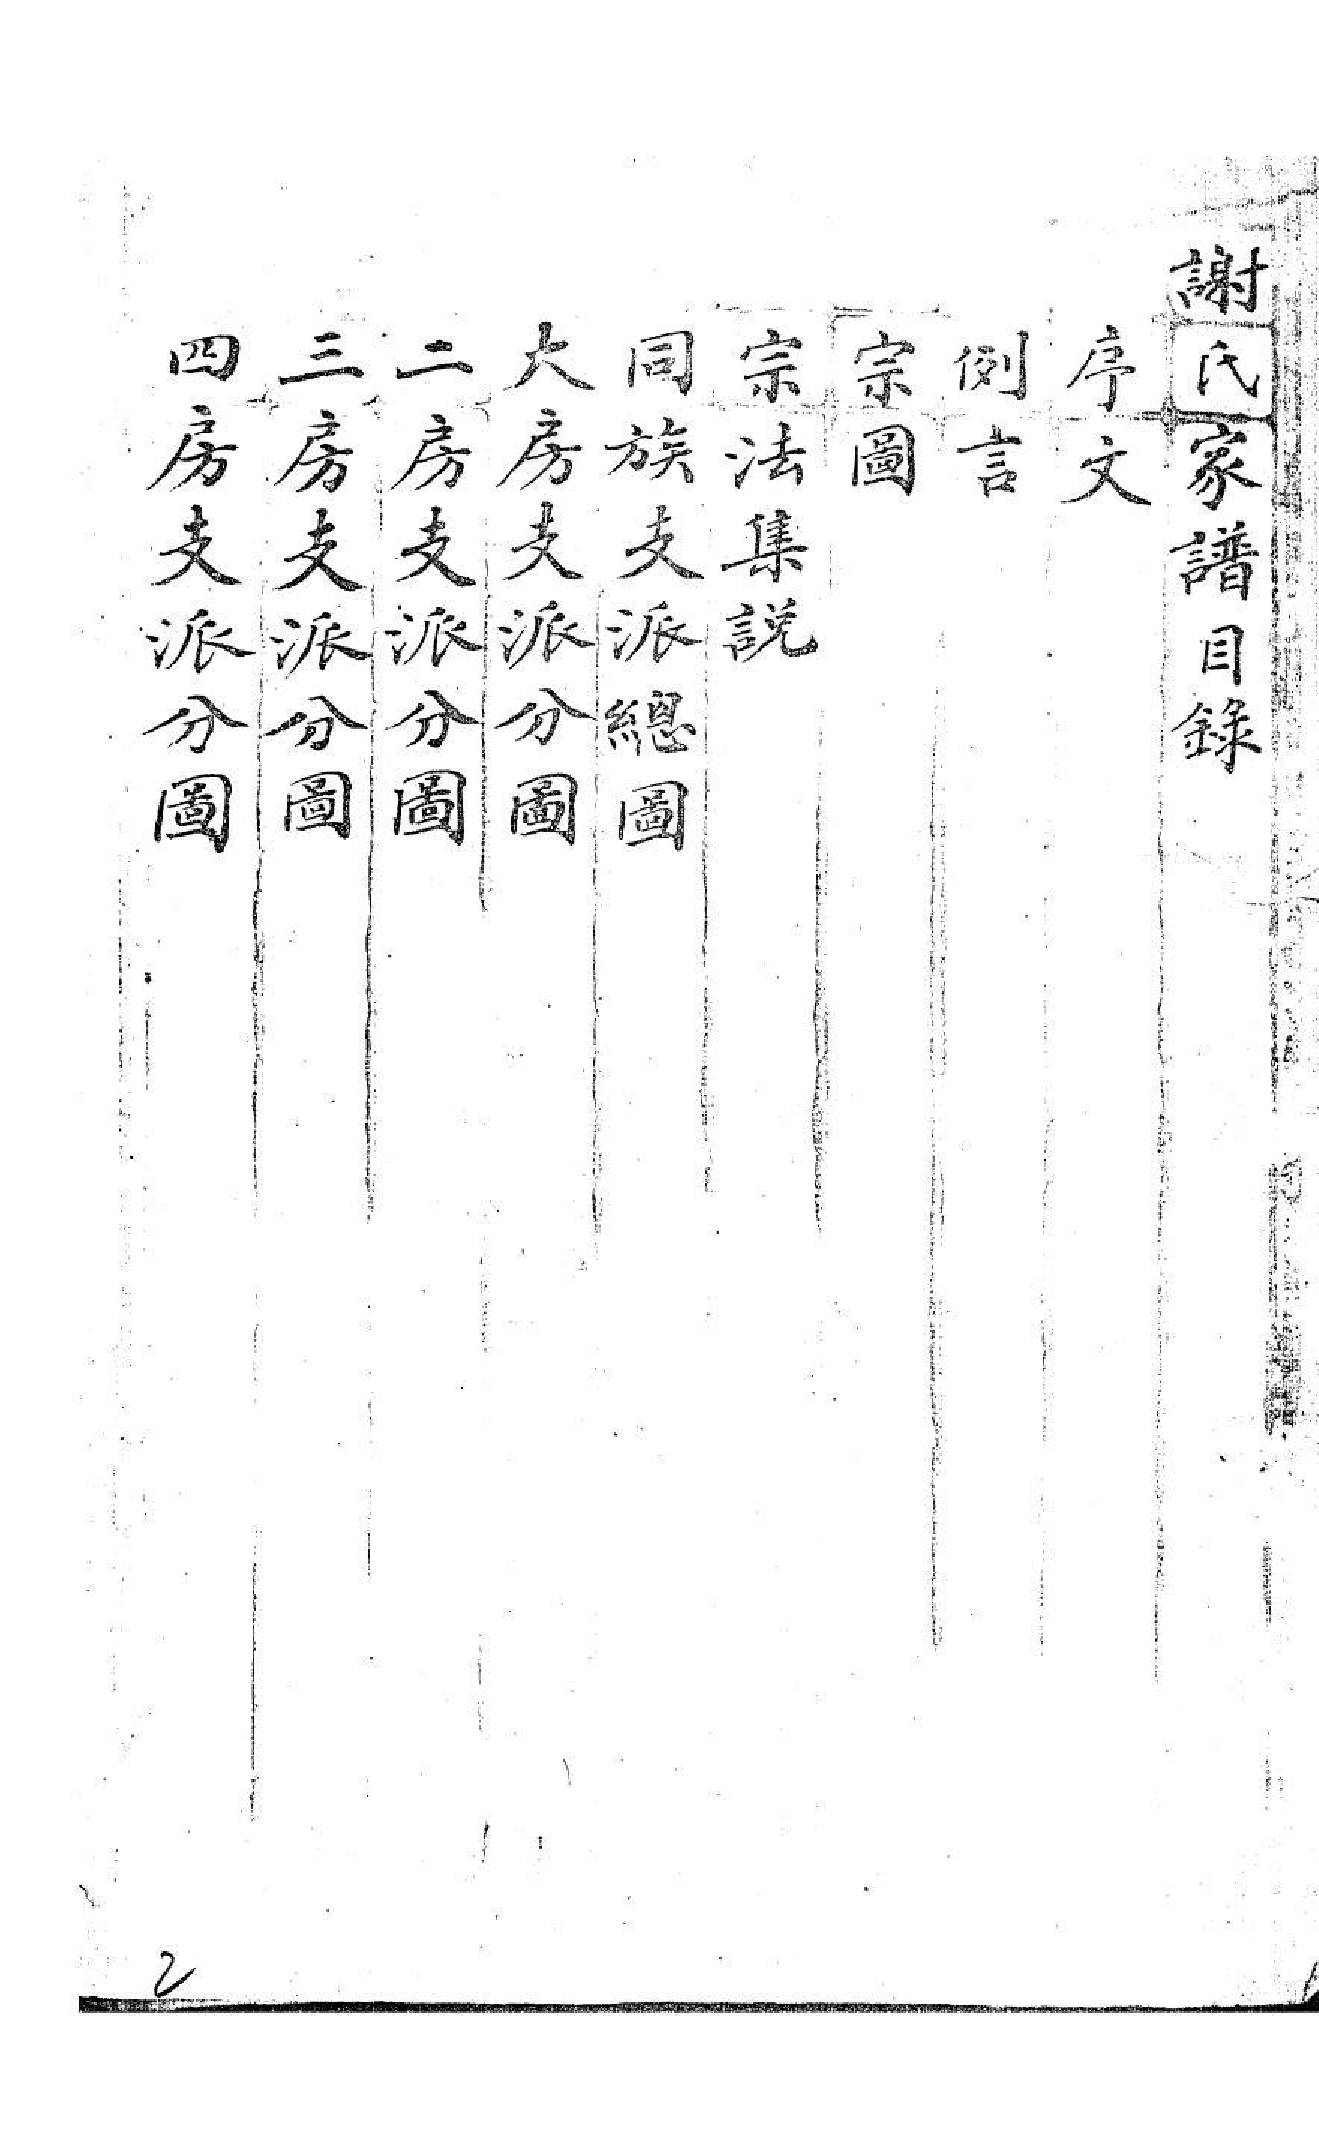 謝氏家譜目錄
序文
例言
宗圖
宗法集説
同族支派總圖
大房支派分圖
二房支派分圖
三房支派分圖
四房支派分圖
2